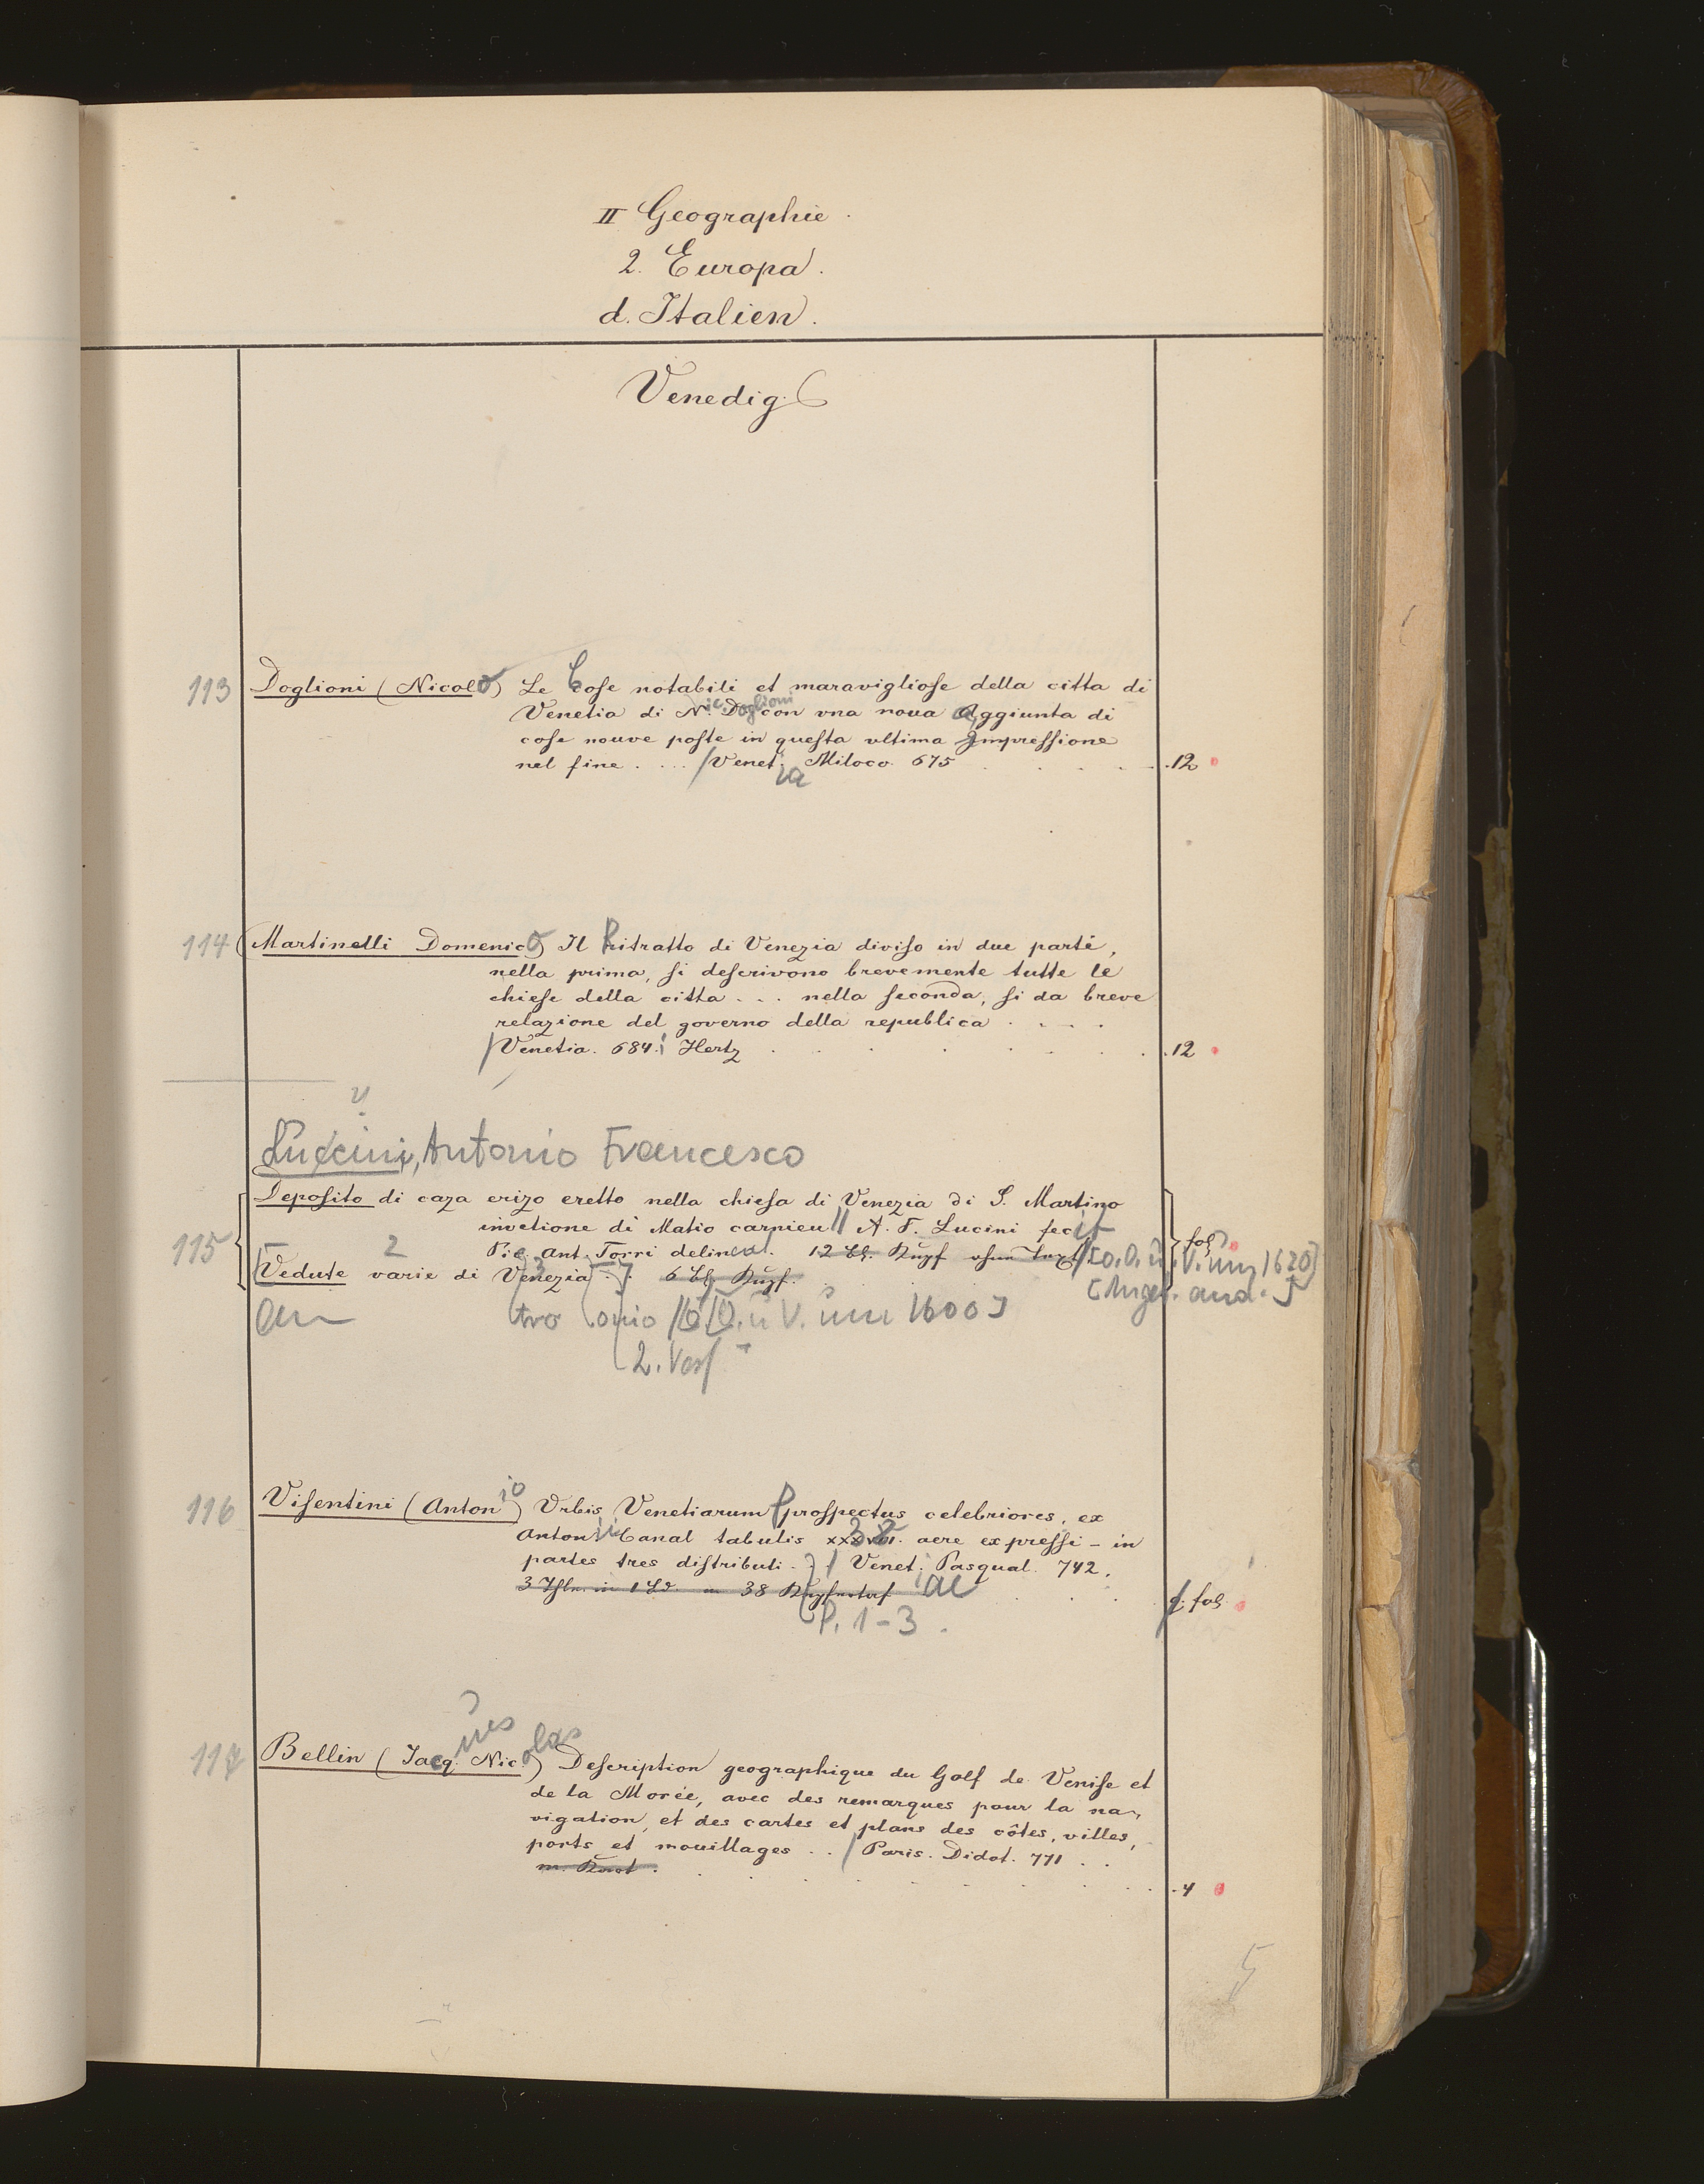 II Geographie.
2. Europa.
d. Italien.
Venedig.
113 Doglioni (Nicolo) Le Cose notabili et maravigliose della citta di
Venetia di Nic. Doglioni con vna noua Aggiunta di
cose nouve poste in questa vltima Impressione
nel fine . ... / Venet. ia Miloco. 675 . 12
114 (Martinelli Domenico) Il Ritratto di Venezia diviso in due parti,
nella prima, si descrivono brevemente tutte le
chiese della citta ... nella seconda, si da breve
relazione del governo della republica . . . .
/ Venetia. 684. Hertz . 12
Luccini, Antonio Francesco
Deposito di caza erizo eretto nella chiesa di Venezia di S. Martino
invetione di Matio carnieu // A. F. Lucini fecit
115 Pie. Ant. Torri delineat. 12 Bl. Kupf ohne Text / [o. O. u. V. um 1620] fol.
Vedute 2 varie di Venezia . 6 Bl. Kupf. [Anget. and.]
an tro onio // [o O. u V. um 1600]
2. Verf
116 Visentini (Antonio) Vrbis Venetiarum Prospectus celebriores, ex
Antonii Canal tabulis XXXVIII. 38 aere expressi – in
partes tres distributi . / Venet. iae Pasqual. 742.
3 Thle. in 1 Bd. m 38 Kupfertaf q. fol.
P. 1-3.
117 Bellin (Jacques Nicolas) Description geographique du Golf de Venise et
de la Morée, avec des remarques pour la na-
vigation, et des cartes et plans des côtes, villes,
ports et mouillages .. / Paris. Didot. 771 . .
m. Kart. . 4
5